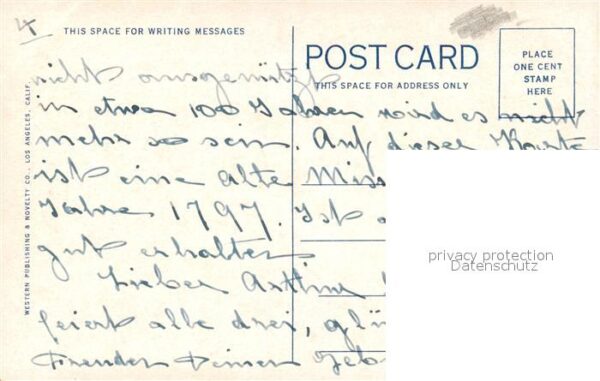 THIS SPACE FOR WRITING MESSAGES
POST CARD
THIS SPACE FOR ADDRESS ONLY
PLACE
ONE CENT
STAMP
HERE
WESTERN PUBLISHING & NOVELTY CO., LOS ANGELES, CALIF.
4
nicht ausgenützt
in etwa 100 Jahren wird es nicht
mehr so sein. Auf dieser Karte
ist eine alte Miss
Jahre 1797. Ist
gut erhalten
Lieber Arthur
feiert alle drei, glü
Geb
privacy protection
Datenschutz